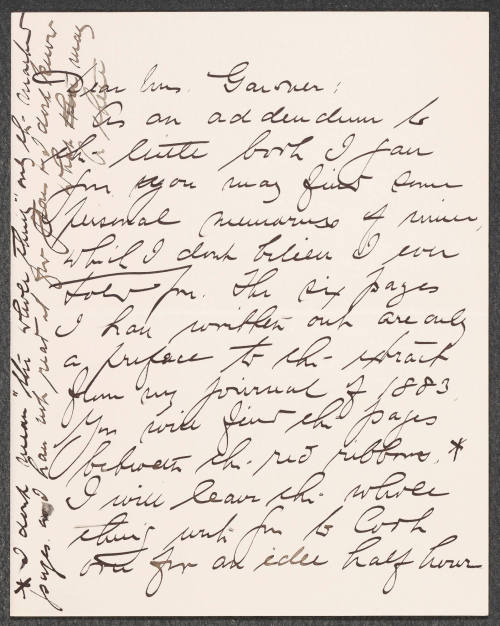 Dear Mrs. Gardner:
As an addendum to
the little book I gave
you you may find some
personal memories of mine,
which I dont believe I ever
told you. The six pages
I have written out are only
a preface to the extract
from my journal of 1883.
You will find the pages
between the red ribbons. *
I will leave the whole
thing with you to look
over for an idle half hour
* I dont mean "the whole thing" only the marked
pages. as I have not read it for years & dont know
what there may
be